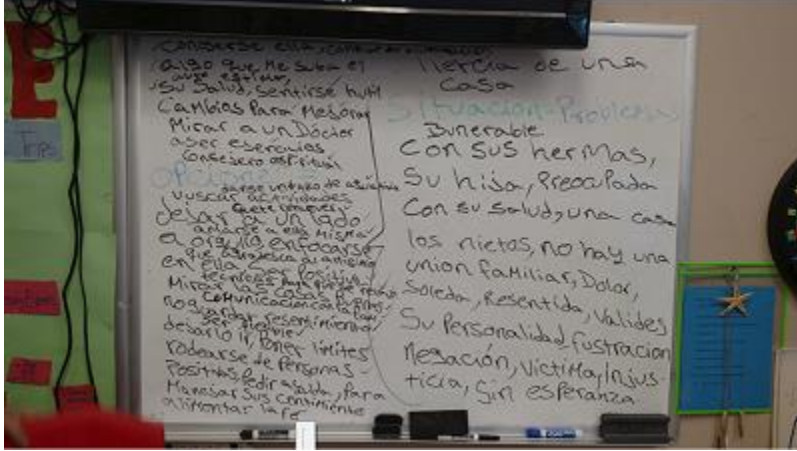 conoserse ella,
algo que Me suba el
auto estima,
su Salud, sentirse hutil
Cambios Para Mejorar
Mirar a un Docter
aser esersisios
Consejero espiritual
opciones
darse un tazo de
vuscar actividades
dejar a un lado
amarse a ella misma
el orgullo, enfocarse
que agradesca
en ella, ser Positiva
Mirar las cosas buenas
comunicacion con la
no guardar resentimiento
ser
dejarlo ir, Poner limites
rodearse de Personas -
Positivas, Pedir ayuda, para
Manejar Sus Centimiento
alimentar la fe
llercia de una
casa
Situacion - Problema
Bunerable
Con sus hermas,
Su hija, Preocupada
Con su salud, una casa
los nietos, no hay una
union faMiliar, Dolor,
Soleda, Resentida, Valides
Su Personalidad, fustracion
Negación, VictiMa, Injus-
ticia, Sin esperanza
Tips